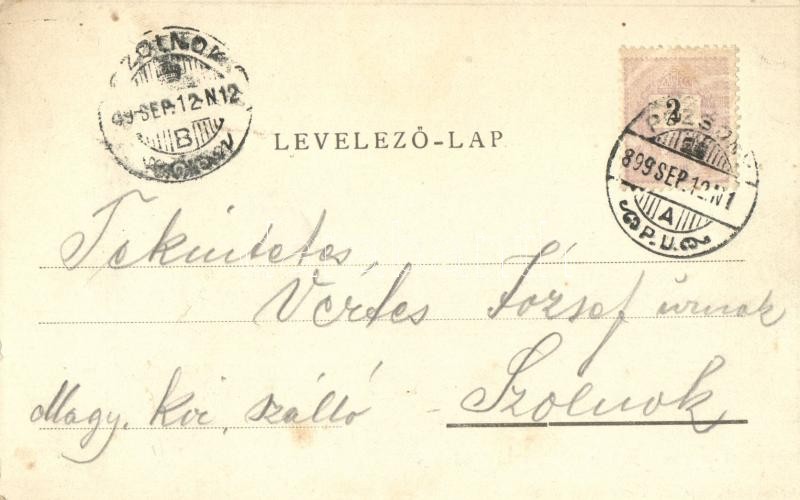 ZOLNOK
99-SEP.12-N12
B
LEVELEZŐ-LAP
2
POZSONY
899 SEP.12.N1
A
P.U.
Tekintetes,
Vértes József úrnak
Magy. kir, szálló - Szolnok